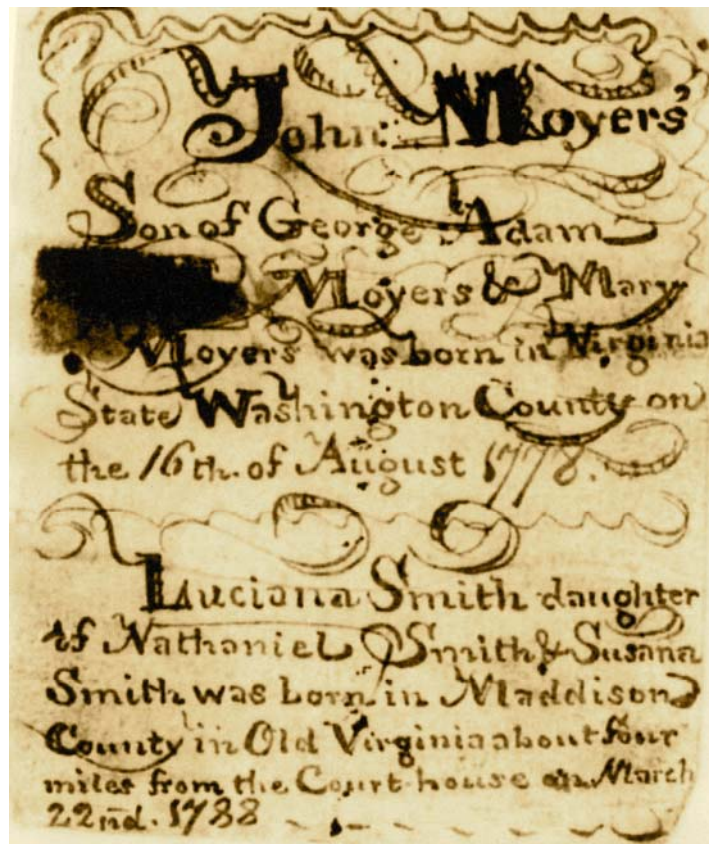 John Moyers'
Son of George Adam
Moyers & Mary
Moyers was born in Virginia
State Washington County on
the 16th. of August 1778.
Luciana Smith daughter
of Nathaniel Smith & Susana
Smith was born in Maddison
County in Old Virginia about four
miles from the Court house on March
22nd. 1788